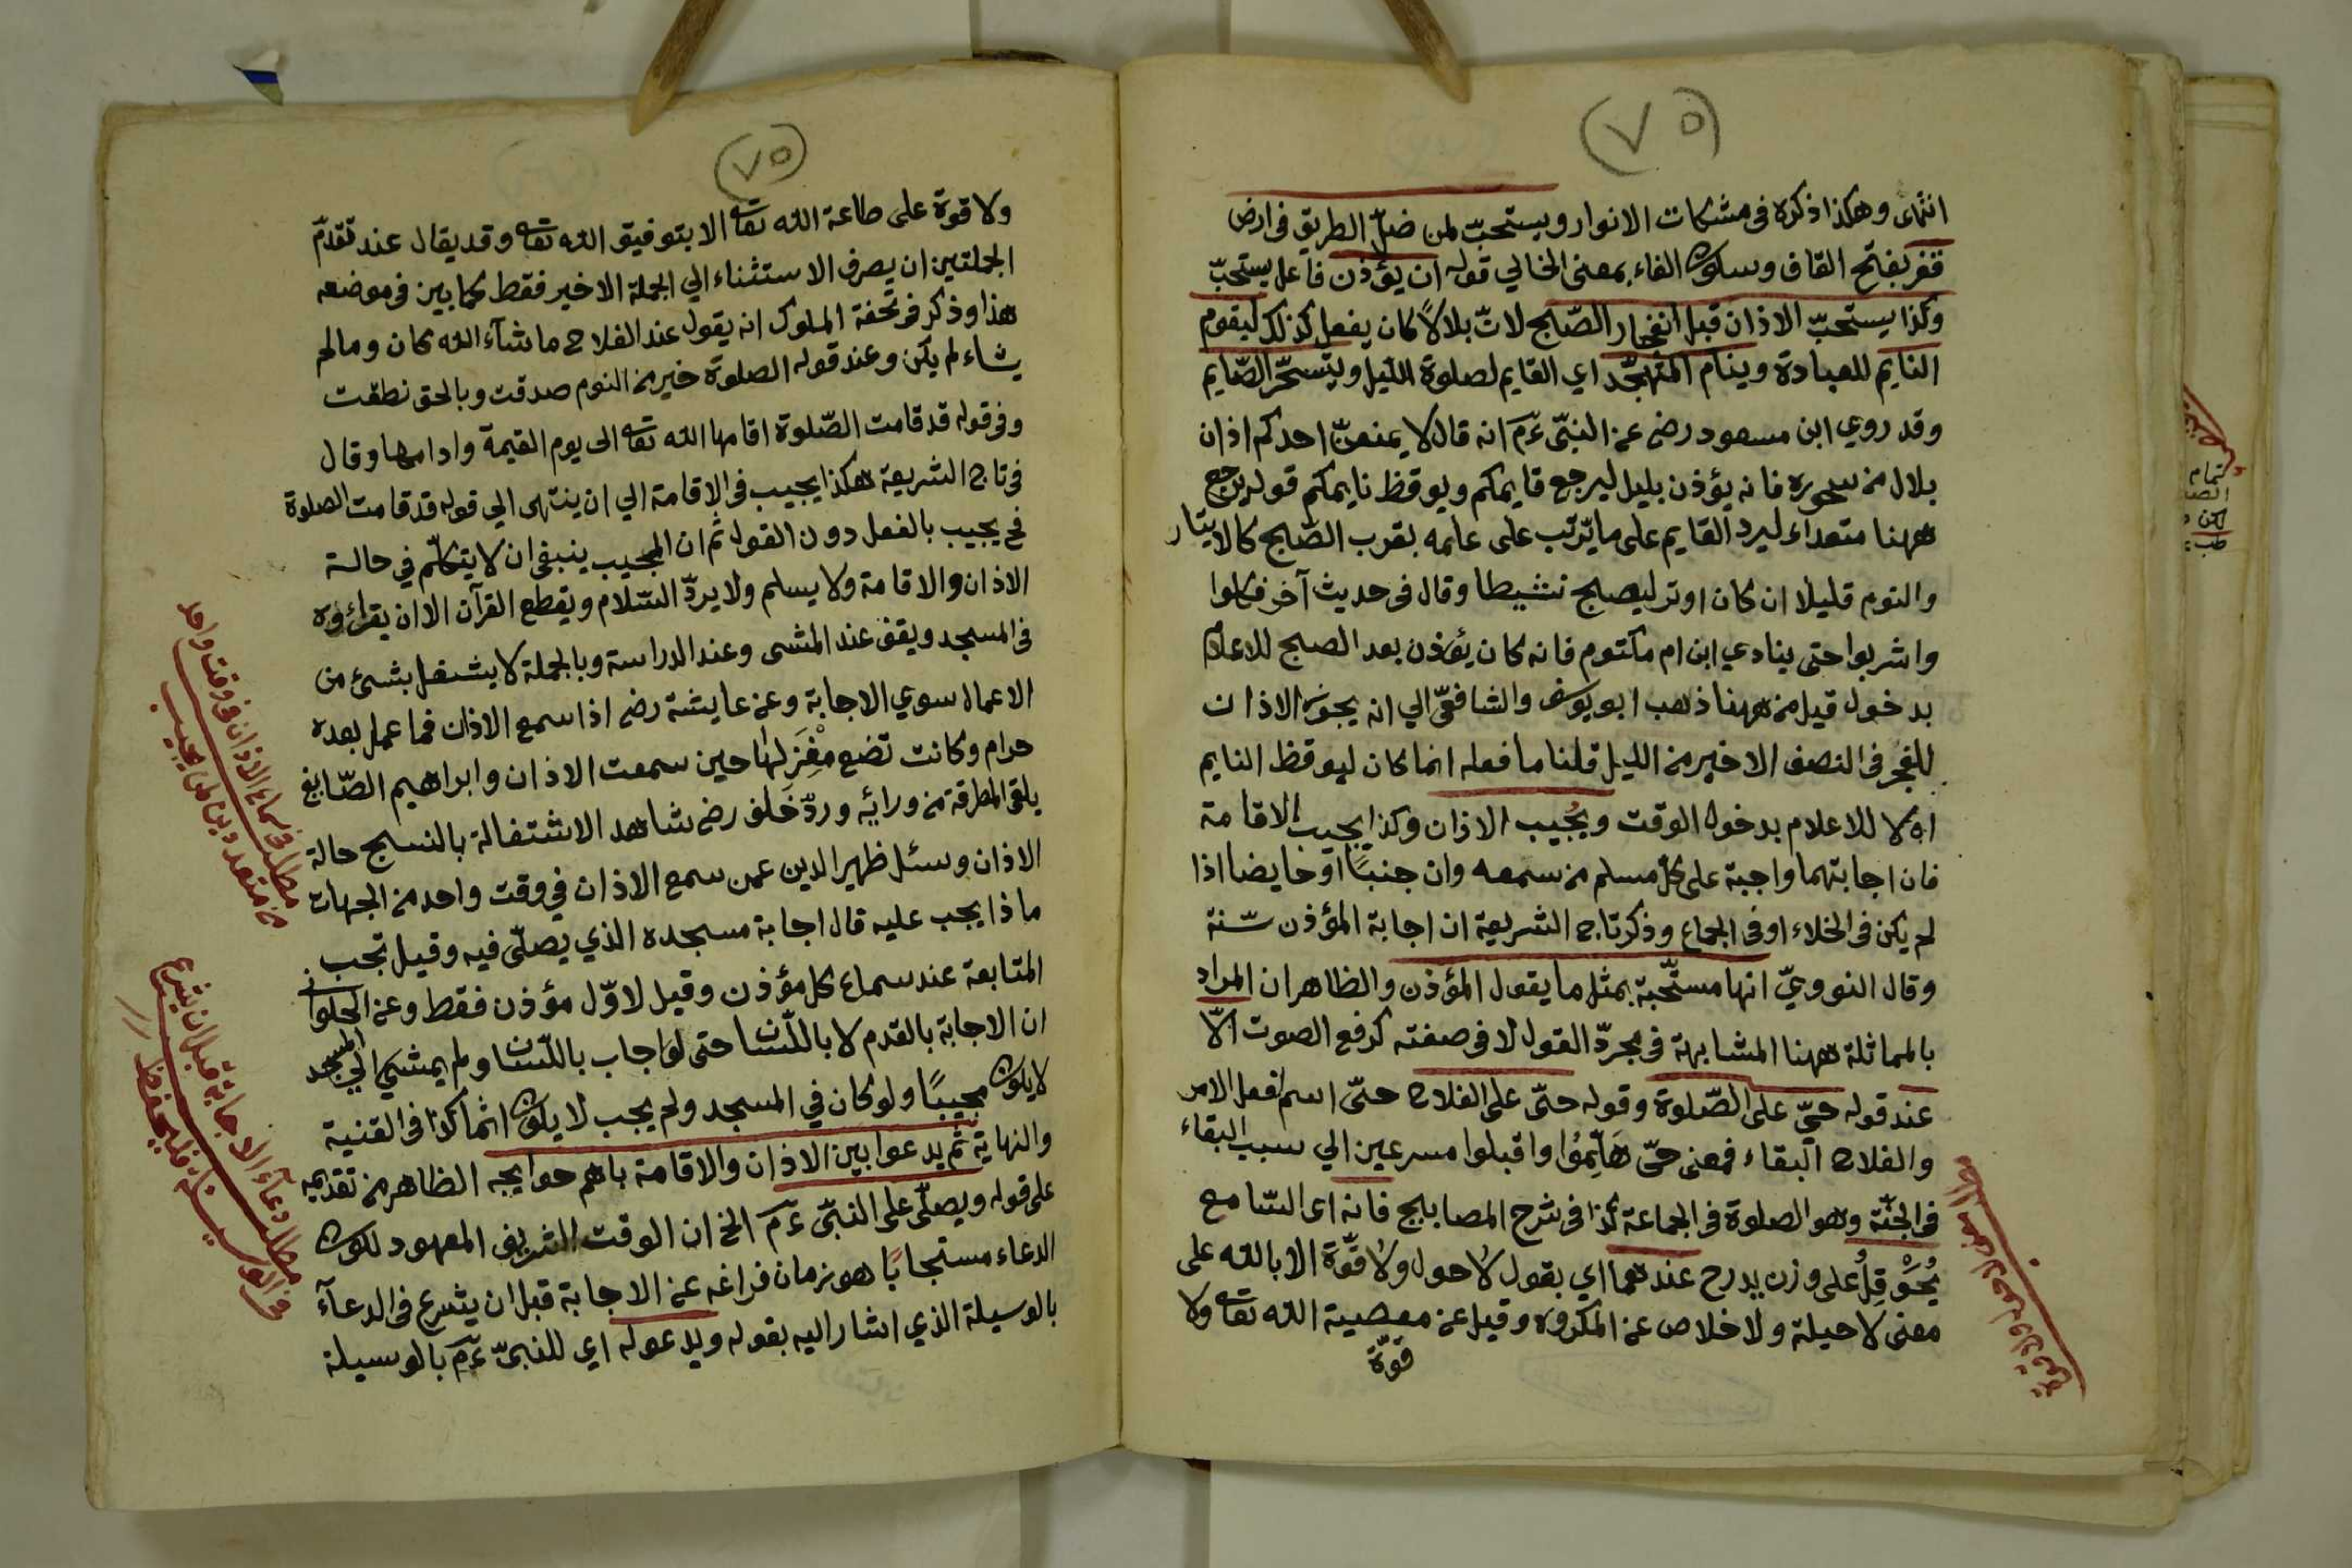 (٧٥)
انتهى وهكذا ذكره فى مشكات الانوار ويستحبّ لمن ضلّ الطريق فى ارض
قفر بفتح القاف وسكون الفاء بمعنى الخالي قوله ان يؤذن فاعل يستحبّ
وكذا يستحبّ الاذان قبل انفجار الصّبح لانّ بلالاً كان يفعل كذلك ليقوم
النايم للعبادة وينام المتهجّد اي القايم لصلوة اللّيل ويتسحّر الصّايم
وقد روي ابن مسعود رضى عن النبّى عَم انه قال لا يمنعنّ احدكم اذان
بلال من سحوره فانه يؤذن بليل ليرجع قايمكم ويوقظ نايمكم قوله يرجع
ههنا متعداء ليرد القايم على ما يترتب على علمه بقرب الصّبح كالايتار
والنوم قليلا ان كان اوتر ليصبح نشيطا وقال فى حديث آخر فكلوا
واشربوا حتى ينادي ابن ام مكتوم فانه كان يؤذن بعد الصبح للاعلام
بدخول قيل من ههنا ذهب ابو يوسف والشافعّى الي انه يجوز الاذان
للفجر فى النصف الاخير من الليل قلنا ما فعله انما كان ليوقظ النايم
لا للاعلام بدخول الوقت ويُجيب الاذان وكذا يجيب الاقامة
فان اجابتهما واجبة على كلّ مسلم من سمعه وان جنباً او حايضا اذا
لم يكن فى الخلاء او فى الجماع وذكر تاج الشريعة ان اجابة المؤذن سّنة
وقال النوويّ انها مستحّبة بمثل ما يقول المؤذن والظاهر ان المراد
بالمماثلة ههنا المشابهة فى مجرّد القول لا فى صفته كرفع الصوت الاّ
عند قوله حىّ على الصّلوة وقوله حىّ على الفلاح حىّ اسم لفعل الامر
والفلاح البقاء فمعنى حىّ هَلِّمُوا واقبلوا مسرعين الي سبب البقاء
فى الجنّة وهو الصلوة فى الجماعة كذا فى شرح المصابيح فانه اى السّامع
يُحَوْقِلُ على وزن يدرج عندهما اي يقول لا حول ولا قوّة الا بالله على
معنى لا حيلة ولا خلاص عن المكروه وقيل عن معصية الله تعا ولا
قوة
(٧٥)
ولا قوة على طاعة الله تعا الا بتوفيق الله تعا وقد يقال عند تقدّم
الجملتين ان يصرف الاستثناء الي الجملة الاخير فقط كما بين فى موضعه
هذا وذكر فى تحفة الملوك انه يقول عند الفلاح ما شآء الله كان وما لم
يشاء لم يكن وعند قوله الصلوة خير من النوم صدقت وبالحق نطقت
وفى قوله قد قامت الصّلوة اقامها الله تعا الى يوم القيمة وادامها وقال
فى تاج الشريعة هكذا يجيب فى الاقامة الي ان ينتهى الي قوله قد قامت الصلوة
فح يجيب بالفعل دون القول ثم ان المجيب ينبغى ان لا يتكلّم في حالة
الاذان والاقامة ولا يسلم ولا يردّ السّلام ويقطع القرآن الا ان يقراؤه
فى المسجد ويقف عند المشى وعند الدراسة وبالجملة لا يشتغل بشئ من
الاعمال سوي الاجابة وعن عايشة رضى اذا سمع الاذان فما عمل بعده
حرام وكانت تضع مغزلها حين سمعت الاذان وابراهيم الصّايغ
يلقى المطرقة من ورائه وردّ خَلف رضى شاهد الاشتغالة بالنسج حالة
الاذان وسئل ظهير الدين عمن سمع الاذان في وقت واحد من الجهات
ماذا يجب عليه قال اجابة مسجده الذي يصلّى فيه وقيل تجب
المتابعة عند سماع كل مؤذن وقيل لاوّل مؤذن فقط وعن الحلوانى
ان الاجابة بالقدم لا باللّسان حتى لو اجاب باللّسان ولم يمشى الي المسجد
لا يكون مجيبًا ولو كان في المسجد ولم يجب لا يكون اثما كذا فى القنية
والنهاية ثم يدعوا بين الاذان والاقامة باهم حوايجه الظاهر من تقديمه
على قوله ويصلّى على النبّى عَم الخ ان الوقت الشريف المعهود لكون
الدعاء مستجابًا هو زمان فراغه عن الاجابة قبل ان يشرع فى الدعآء
بالوسيلة الذي اشار اليه بقوله ويدعو له اي للنبىّ عَم بالوسيلة
مطلب فى سماع الاذان فى وقت واحد
من متعدد
مطلب دعآء الاجابة قبل ان يشرع
فى الوسيلة فليحفظ